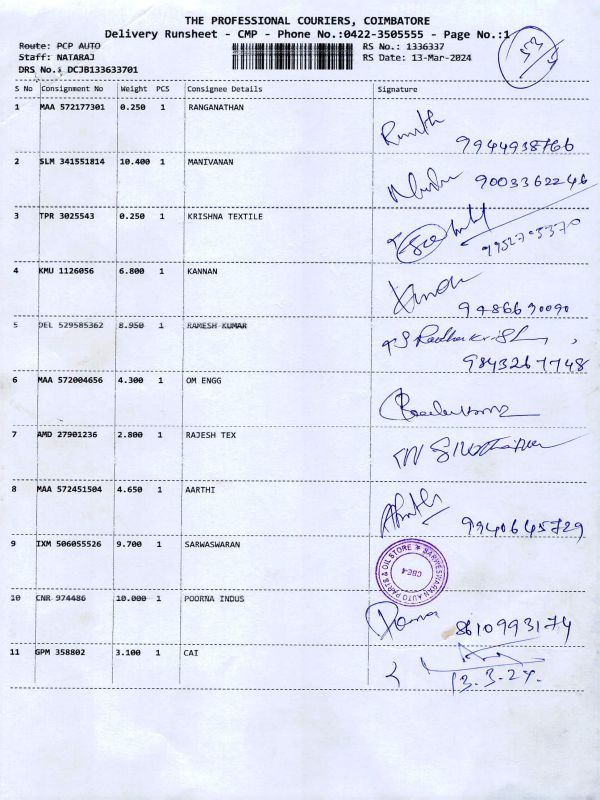 THE PROFESSIONAL COURIERS, COIMBATORE
Delivery Runsheet - CMP - Phone No.:0422-3505555 - Page No.:1
Route: PCP AUTO
RS No.: 1336337
Staff: NATARAJ
RS Date: 13-Mar-2024
DRS No.: DCJB133633701
S No Consignment No Weight PCS Consignee Details Signature
1 MAA 572177301 0.250 1 RANGANATHAN
9944938766
2 SLM 341551814 10.400 1 MANIVANAN
9003362246
3 TPR 3025543 0.250 1 KRISHNA TEXTILE
4 KMU 1126056 6.800 1 KANNAN
9486690090
5 DEL 529585362 8.950 1 RAMESH KUMAR
9843267748
6 MAA 572004656 4.300 1 OM ENGG
7 AMD 27901236 2.800 1 RAJESH TEX
8 MAA 572451504 4.650 1 AARTHI
9940645729
9 IXM 506055526 9.700 1 SARWASWARAN
SARWESWARAN AUTO PARTS & OIL STORE
CBE-4
10 CNR 974486 10.000 1 POORNA INDUS
Poorna 8610993174
11 GPM 358802 3.100 1 CAI
13.3.24.